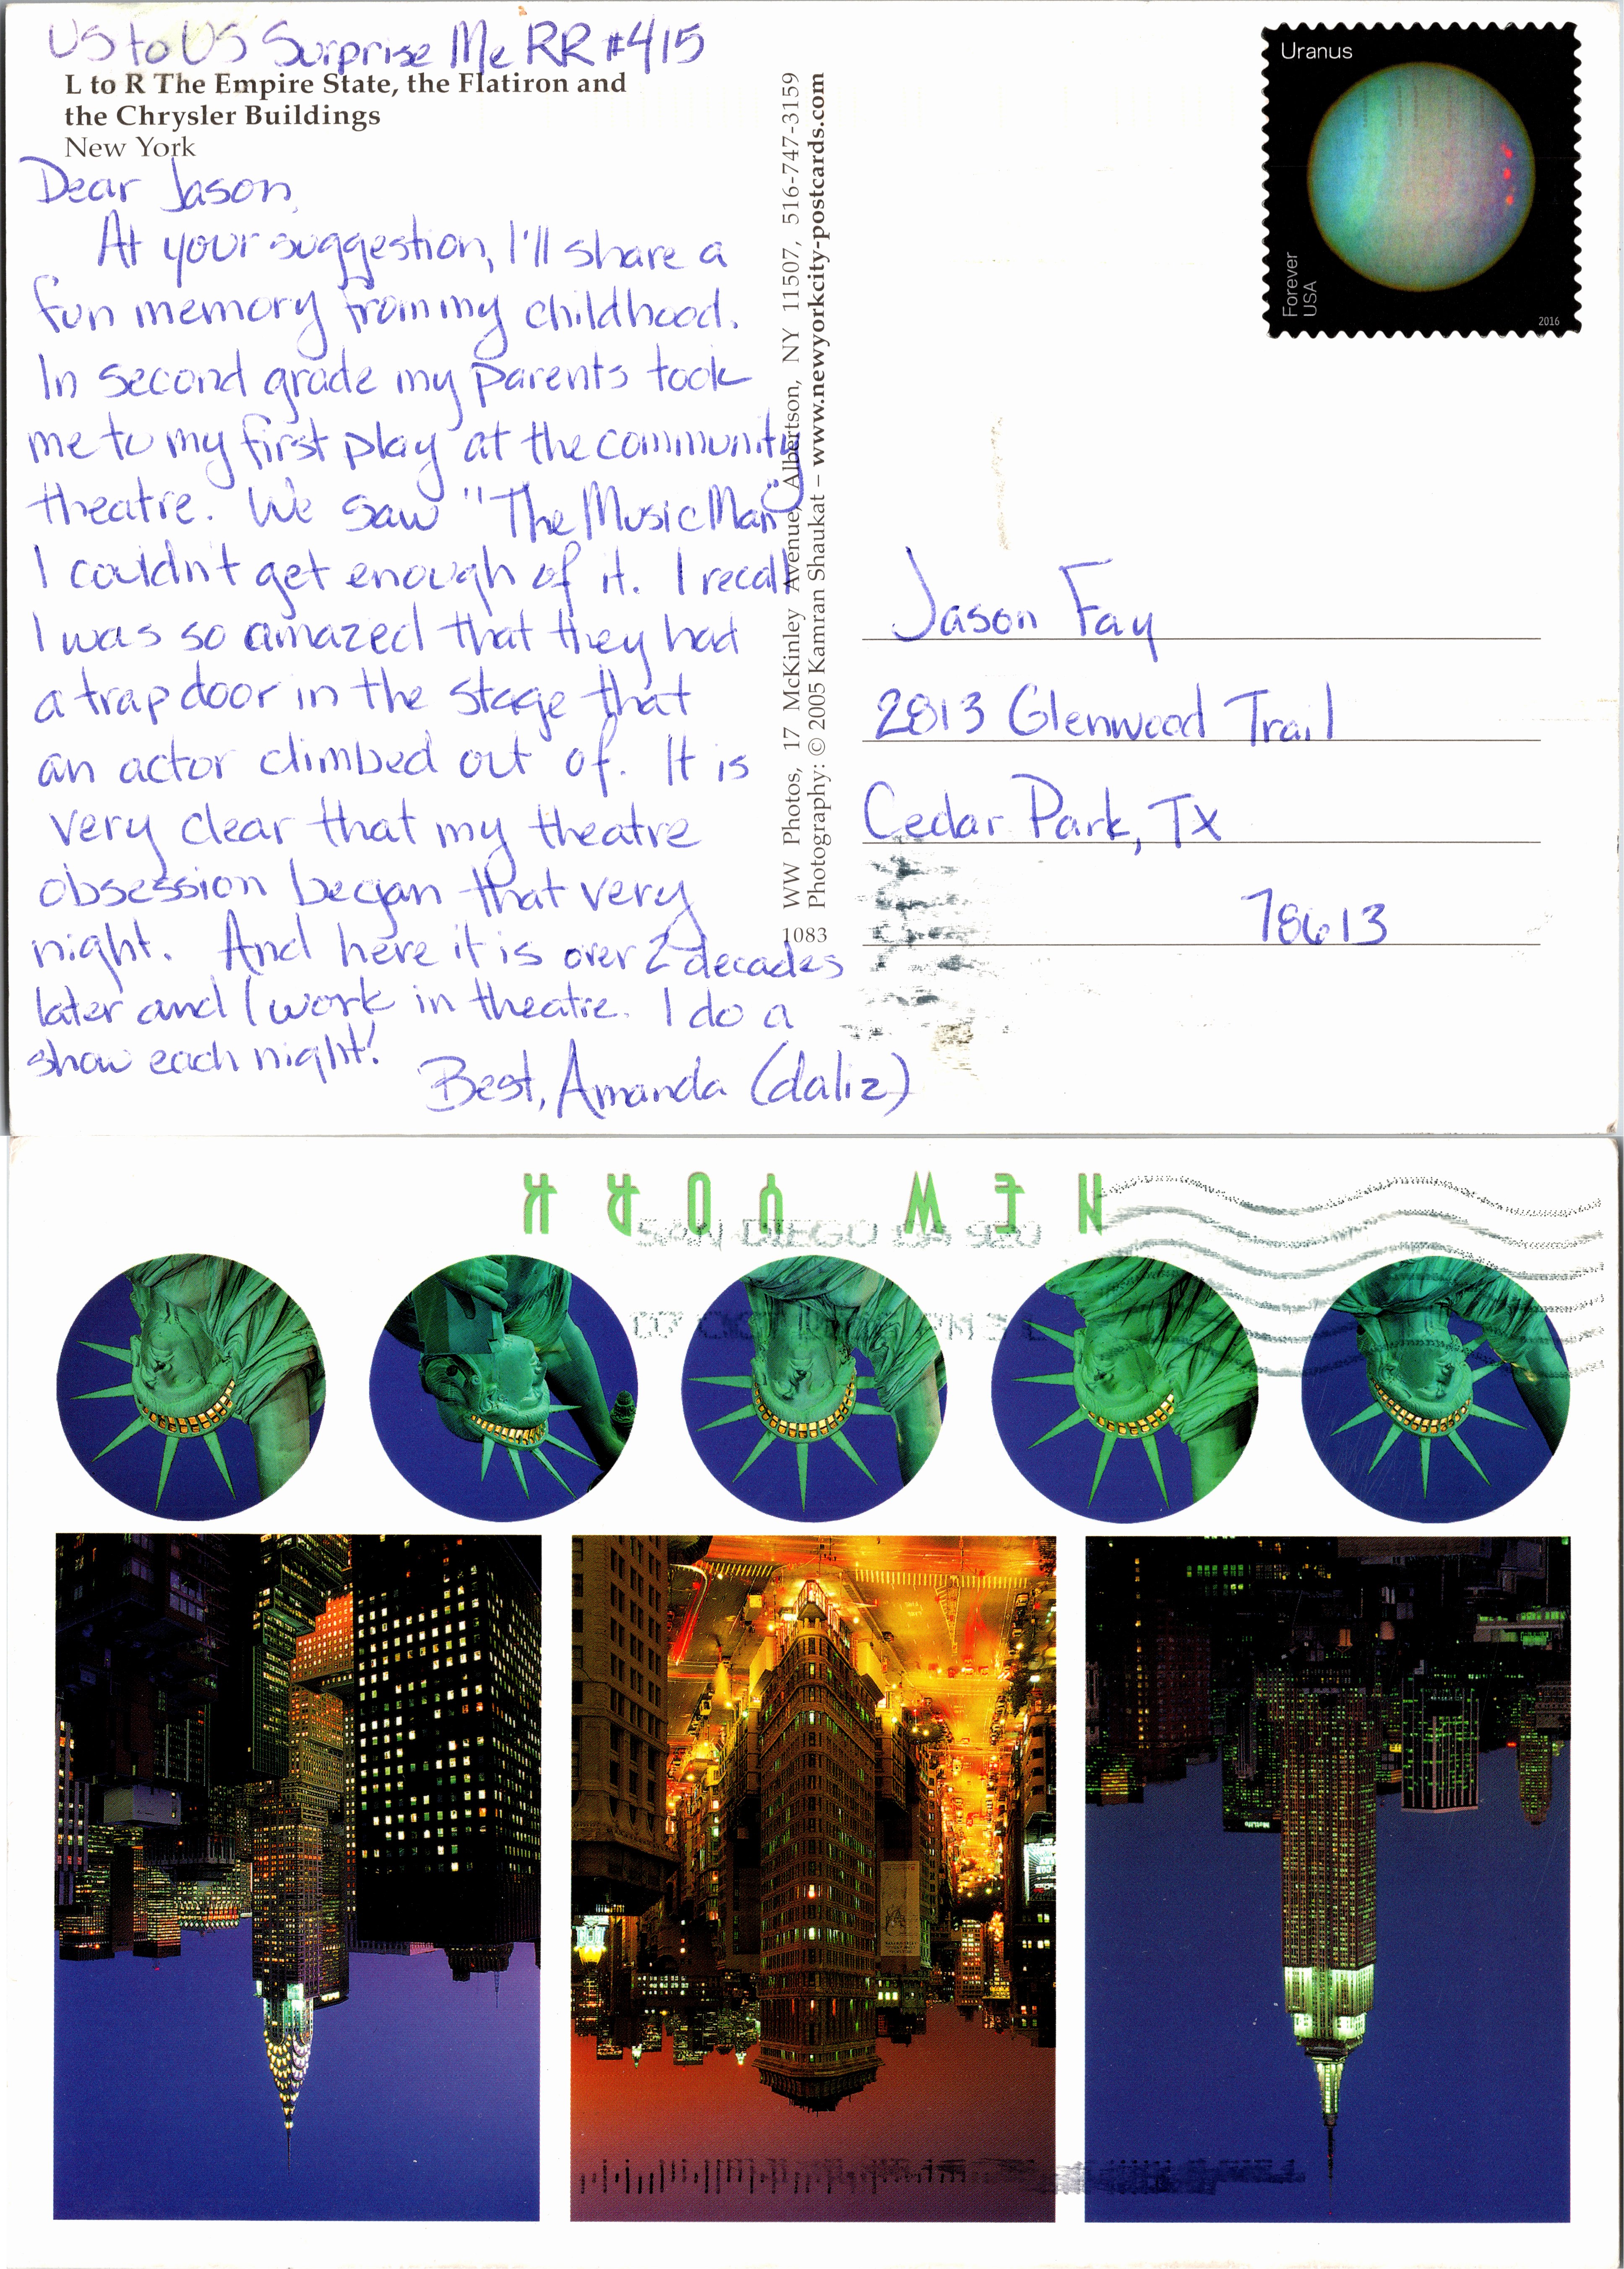 US to US Surprise Me RR #415
L to R The Empire State, the Flatiron and
the Chrysler Buildings
New York
Dear Jason,
At your suggestion, I'll share a
fun memory from my childhood.
In second grade my parents took
me to my first play at the community
theatre. We saw "The Music Man"
I couldn't get enough of it. I recall
I was so amazed that they had
a trap door in the stage that
an actor climbed out of. It is
very clear that my theatre
obsession began that very
night. And here it is over 2 decades
later and I work in theatre. I do a
show each night!
Best, Amanda (daliz)
1083 WW Photos, 17 McKinley Avenue, Albertson, NY 11507, 516-747-3159
Photography: © 2005 Kamran Shaukat – www.newyorkcity-postcards.com
Uranus
Forever
USA
2016
Jason Fay
2813 Glenwood Trail
Cedar Park, TX
78613
NEW YORK
SAN DIEGO CA 920
07 OCT PM